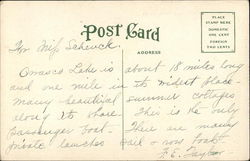 Post Card
PLACE
STAMP HERE
DOMESTIC
ONE CENT
FOREIGN
TWO CENTS
ADDRESS
For Miss Schenck.
Owasco Lake is about 18 miles long
and one mile in its widest place.
Many beautiful summer cottages
along its shore. This is the only
passenger boat. There are many
private launches sail & row boats.
F. E. Taylor